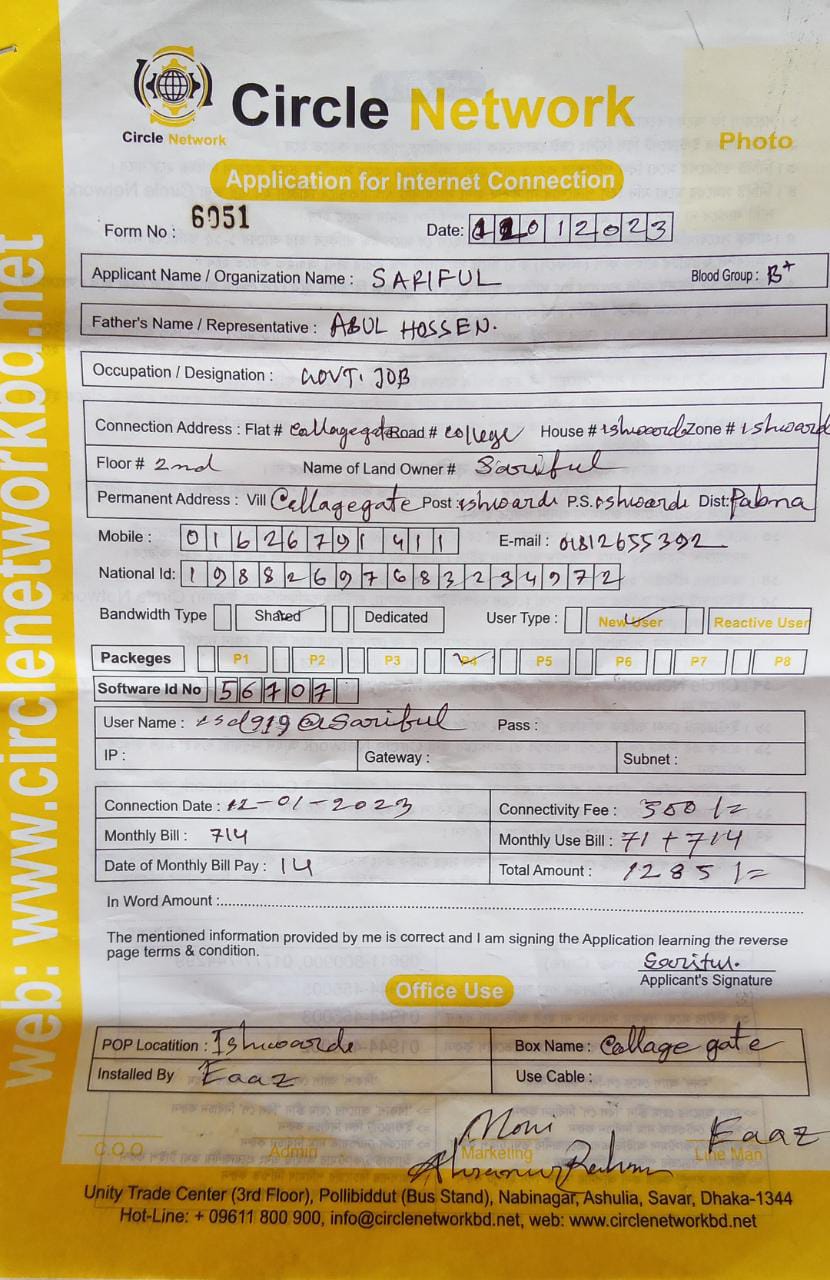 Circle Network
Circle Network
Photo
Application for Internet Connection
Form No : 6051
Date: 12012023
Applicant Name / Organization Name : SARIFUL Blood Group : B+
Father's Name / Representative : ABUL HOSSEN.
Occupation / Designation : GOVT. JOB
Connection Address : Flat # Collagegate Road # College House # ishwardi Zone # ishward
Floor # 2nd Name of Land Owner # Sariful
Permanent Address : Vill Collagegate Post : ishwardi P.S. ishwardi Dist: Pabna
Mobile : 01626791411 E-mail : 01812655392
National Id: 19882697683234972
Bandwidth Type Shared Dedicated User Type : New User Reactive User
Packeges P1 P2 P3 P4 P5 P6 P7 P8
Software Id No 56707
User Name : isd919@Sariful Pass :
IP : Gateway : Subnet :
Connection Date : 12-01-2023 Connectivity Fee : 500/=
Monthly Bill : 714 Monthly Use Bill : 71 + 714
Date of Monthly Bill Pay : 14 Total Amount : 1285/=
In Word Amount :
The mentioned information provided by me is correct and I am signing the Application learning the reverse
page terms & condition.
Sariful.
Applicant's Signature
Office Use
POP Locatition : Ishwardi Box Name : Collage gate
Installed By Eaaz Use Cable :
Moni Eaaz
C.O.O Admin Marketing Line Man
Unity Trade Center (3rd Floor), Pollibiddut (Bus Stand), Nabinagar, Ashulia, Savar, Dhaka-1344
Hot-Line: + 09611 800 900, info@circlenetworkbd.net, web: www.circlenetworkbd.net
web: www.circlenetworkbd.net